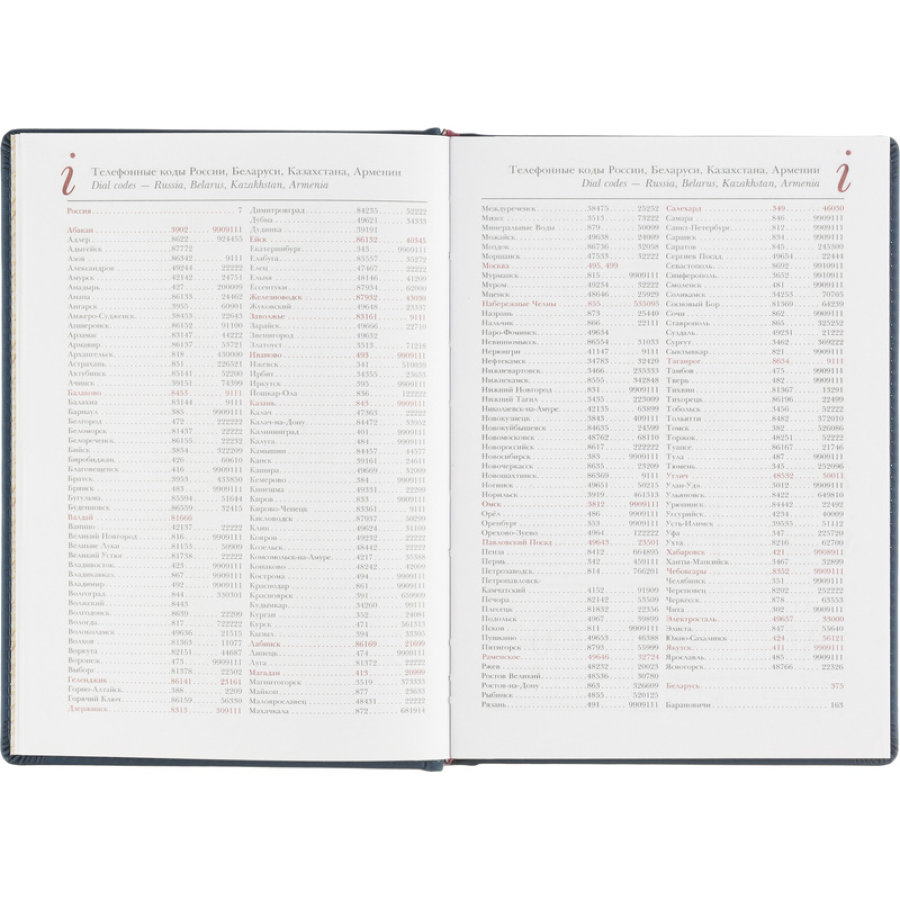 i
Телефонные коды России, Беларуси, Казахстана, Армении
Dial codes — Russia, Belarus, Kazakhstan, Armenia
Россия 7
Абакан 3902 9909111
Адлер 8622 924455
Адыгейск 87772
Азов 86342 9111
Александров 49244 22222
Амурск 42142 24751
Анадырь 427 200009
Анапа 86133 24462
Ангарск 3955 60901
Анжеро-Судженск 38453 22643
Апшеронск 86152 91100
Арзамас 83147 44222
Армавир 86137 53721
Архангельск 818 430000
Астрахань 851 226521
Ахтубинск 85141 52200
Ачинск 39151 74399
Балаково 8453 9111
Балахна 83144 9111
Барнаул 385 9909111
Белгород 472 222222
Беломорск 81437 22222
Белореченск 86155 22232
Бийск 3854 322209
Биробиджан 426 60610
Благовещенск 416 9909111
Братск 3953 433850
Брянск 483 9909111
Бугульма 85594 51644
Буденновск 86559 32415
Валдай 81666
Ванино 42137 22222
Великий Новгород 816 9909111
Великие Луки 81153 50909
Великий Устюг 81738 22222
Владивосток 423 9909111
Владикавказ 867 9909111
Владимир 492 9909111
Волгоград 844 330301
Волжский 8443
Волгодонск 8639 22209
Вологда 817 722222
Волоколамск 49636 21515
Волхов 81363 11077
Воркута 82151 44687
Воронеж 473 9909111
Выборг 81378 22502
Геленджик 86141 23161
Горно-Алтайск 388 2209
Горячий Ключ 86159 36330
Дзержинск 8313 309111
Димитровград 84235 52222
Дубна 49621 54333
Дудинка 39191
Ейск 86132 40345
Екатеринбург 343 9909111
Елабуга 85557 35272
Елец 47467 22222
Ельня 48146 41209
Ессентуки 87934 62000
Железноводск 87932 43030
Жуковский 49648 23337
Заволжье 83161 9111
Зарайск 49666 22710
Звенигород 49632
Златоуст 3513 71218
Иваново 493 9909111
Ижевск 341 510039
Ирбит 34355 23635
Иркутск 395 9909111
Йошкар-Ола 836 122222
Казань 843 9909111
Калач 47363 22222
Калач-на-Дону 84472 33952
Калининград 401 9909111
Калуга 484 9909111
Камышин 84457 44577
Канск 39161 24611
Кашира 49669 32009
Кемерово 384 9909111
Кинешма 49331 22209
Киров 833 9909111
Кирово-Чепецк 83361 9111
Кисловодск 87937 50299
Клин 49624 31100
Ковров 49232 22222
Козельск 48442 22222
Комсомольск-на-Амуре 4217 35388
Конаково 48242 42009
Кострома 494 9909111
Краснодар 861 9909111
Красноярск 391 659909
Кудымкар 34260 99111
Курган 352 24081
Курск 471 561313
Кызыл 394 33305
Лабинск 86169 21699
Липецк 474 9909111
Луга 81372 22222
Магадан 413 20999
Магнитогорск 3519 373333
Майкоп 877 23633
Малоярославец 48431 22222
Махачкала 872 681914
i
Телефонные коды России, Беларуси, Казахстана, Армении
Dial codes — Russia, Belarus, Kazakhstan, Armenia
Междуреченск 38475 25252
Миасс 3513 73222
Минеральные Воды 879 50009
Можайск 49638 24009
Моздок 86736 32058
Моршанск 47533 32222
Москва 495, 499
Мурманск 815 9909111
Муром 49234 32222
Мценск 48646 25929
Набережные Челны 855 535095
Назрань 873 25440
Нальчик 866 22111
Наро-Фоминск 49634
Невинномысск 86554 31033
Нерюнгри 41147 9111
Нефтекамск 34783 32420
Нижневартовск 3466 233333
Нижнекамск 8555 342848
Нижний Новгород 831 9909111
Нижний Тагил 3435 223009
Николаевск-на-Амуре 42135 63899
Новокузнецк 3843 409111
Новокуйбышевск 84635 24599
Новомосковск 48762 68110
Новороссийск 8617 222222
Новосибирск 383 9909111
Новочеркасск 8635 23209
Новошахтинск 86369 9111
Ногинск 49651 50215
Норильск 3919 461313
Омск 3812 9909111
Орёл 486 9909111
Оренбург 353 9909111
Орехово-Зуево 4964 122222
Павловский Посад 49643 23501
Пенза 8412 664895
Пермь 342 459111
Петрозаводск 814 766201
Петропавловск-
Камчатский 4152 91909
Печора 82142 53509
Плесецк 81832 22356
Подольск 4967 39899
Псков 811 9909111
Пушкино 49653 46388
Пятигорск 8793 55999
Раменское 49646 32724
Ржев 48232 20023
Ростов Великий 48536 30780
Ростов-на-Дону 863 326609
Рыбинск 4855 520125
Рязань 491 9909111
Салехард 349 46030
Самара 846 9909111
Санкт-Петербург 812 9909111
Саранск 834 9909111
Саратов 845 243300
Сергиев Посад 49654 22444
Севастополь 8692 9910911
Симферополь 3652 9910911
Смоленск 481 9909111
Соликамск 34253 70705
Сосновый Бор 81369 64239
Сочи 862 9909111
Ставрополь 865 325252
Суздаль 49231 21222
Сургут 3462 369222
Сыктывкар 821 9909111
Таганрог 8634 9111
Тамбов 475 9909111
Тверь 482 9909111
Тихвин 81367 13291
Тихорецк 86196 22499
Тобольск 3456 52222
Тольятти 8482 372010
Томск 382 526086
Торжок 48251 52222
Туапсе 86167 21746
Тула 487 9909111
Тюмень 345 252096
Углич 48532 50011
Улан-Удэ 3012 9909111
Ульяновск 8422 649810
Урюпинск 84442 22492
Уссурийск 4234 40009
Усть-Илимск 39535 51112
Уфа 347 225720
Ухта 8216 62709
Хабаровск 421 9908911
Ханты-Мансийск 3467 32899
Чебоксары 8352 9909111
Челябинск 351 9909111
Череповец 8202 252222
Черкесск 878 63553
Чита 302 9909111
Электросталь 49657 33000
Элиста 847 55640
Южно-Сахалинск 424 56121
Якутск 411 9909111
Ярославль 485 9909111
Ясногорск 48766 22326
Беларусь 375
Барановичи 163